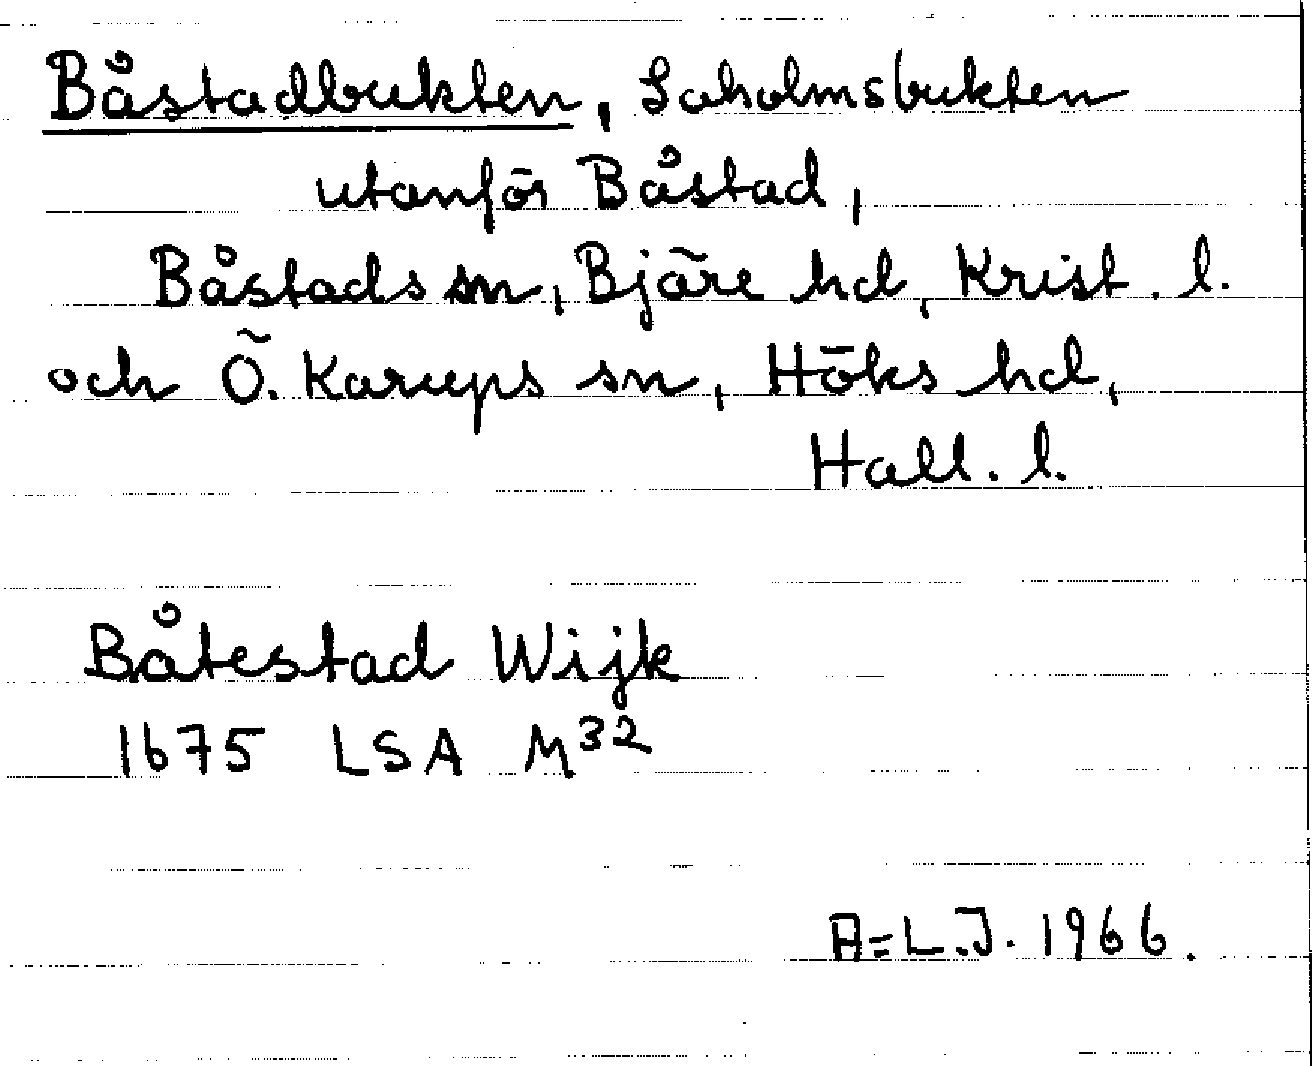 Båstadbukten, Laholmsbukten
utanför Båstad,
Båstads sn, Bjäre hd, Krist. l.
och Ö. Karups sn, Höks hd,
Hall. l.
Båtestad Wijk
1675 LSA M32
A-L.J. 1966.